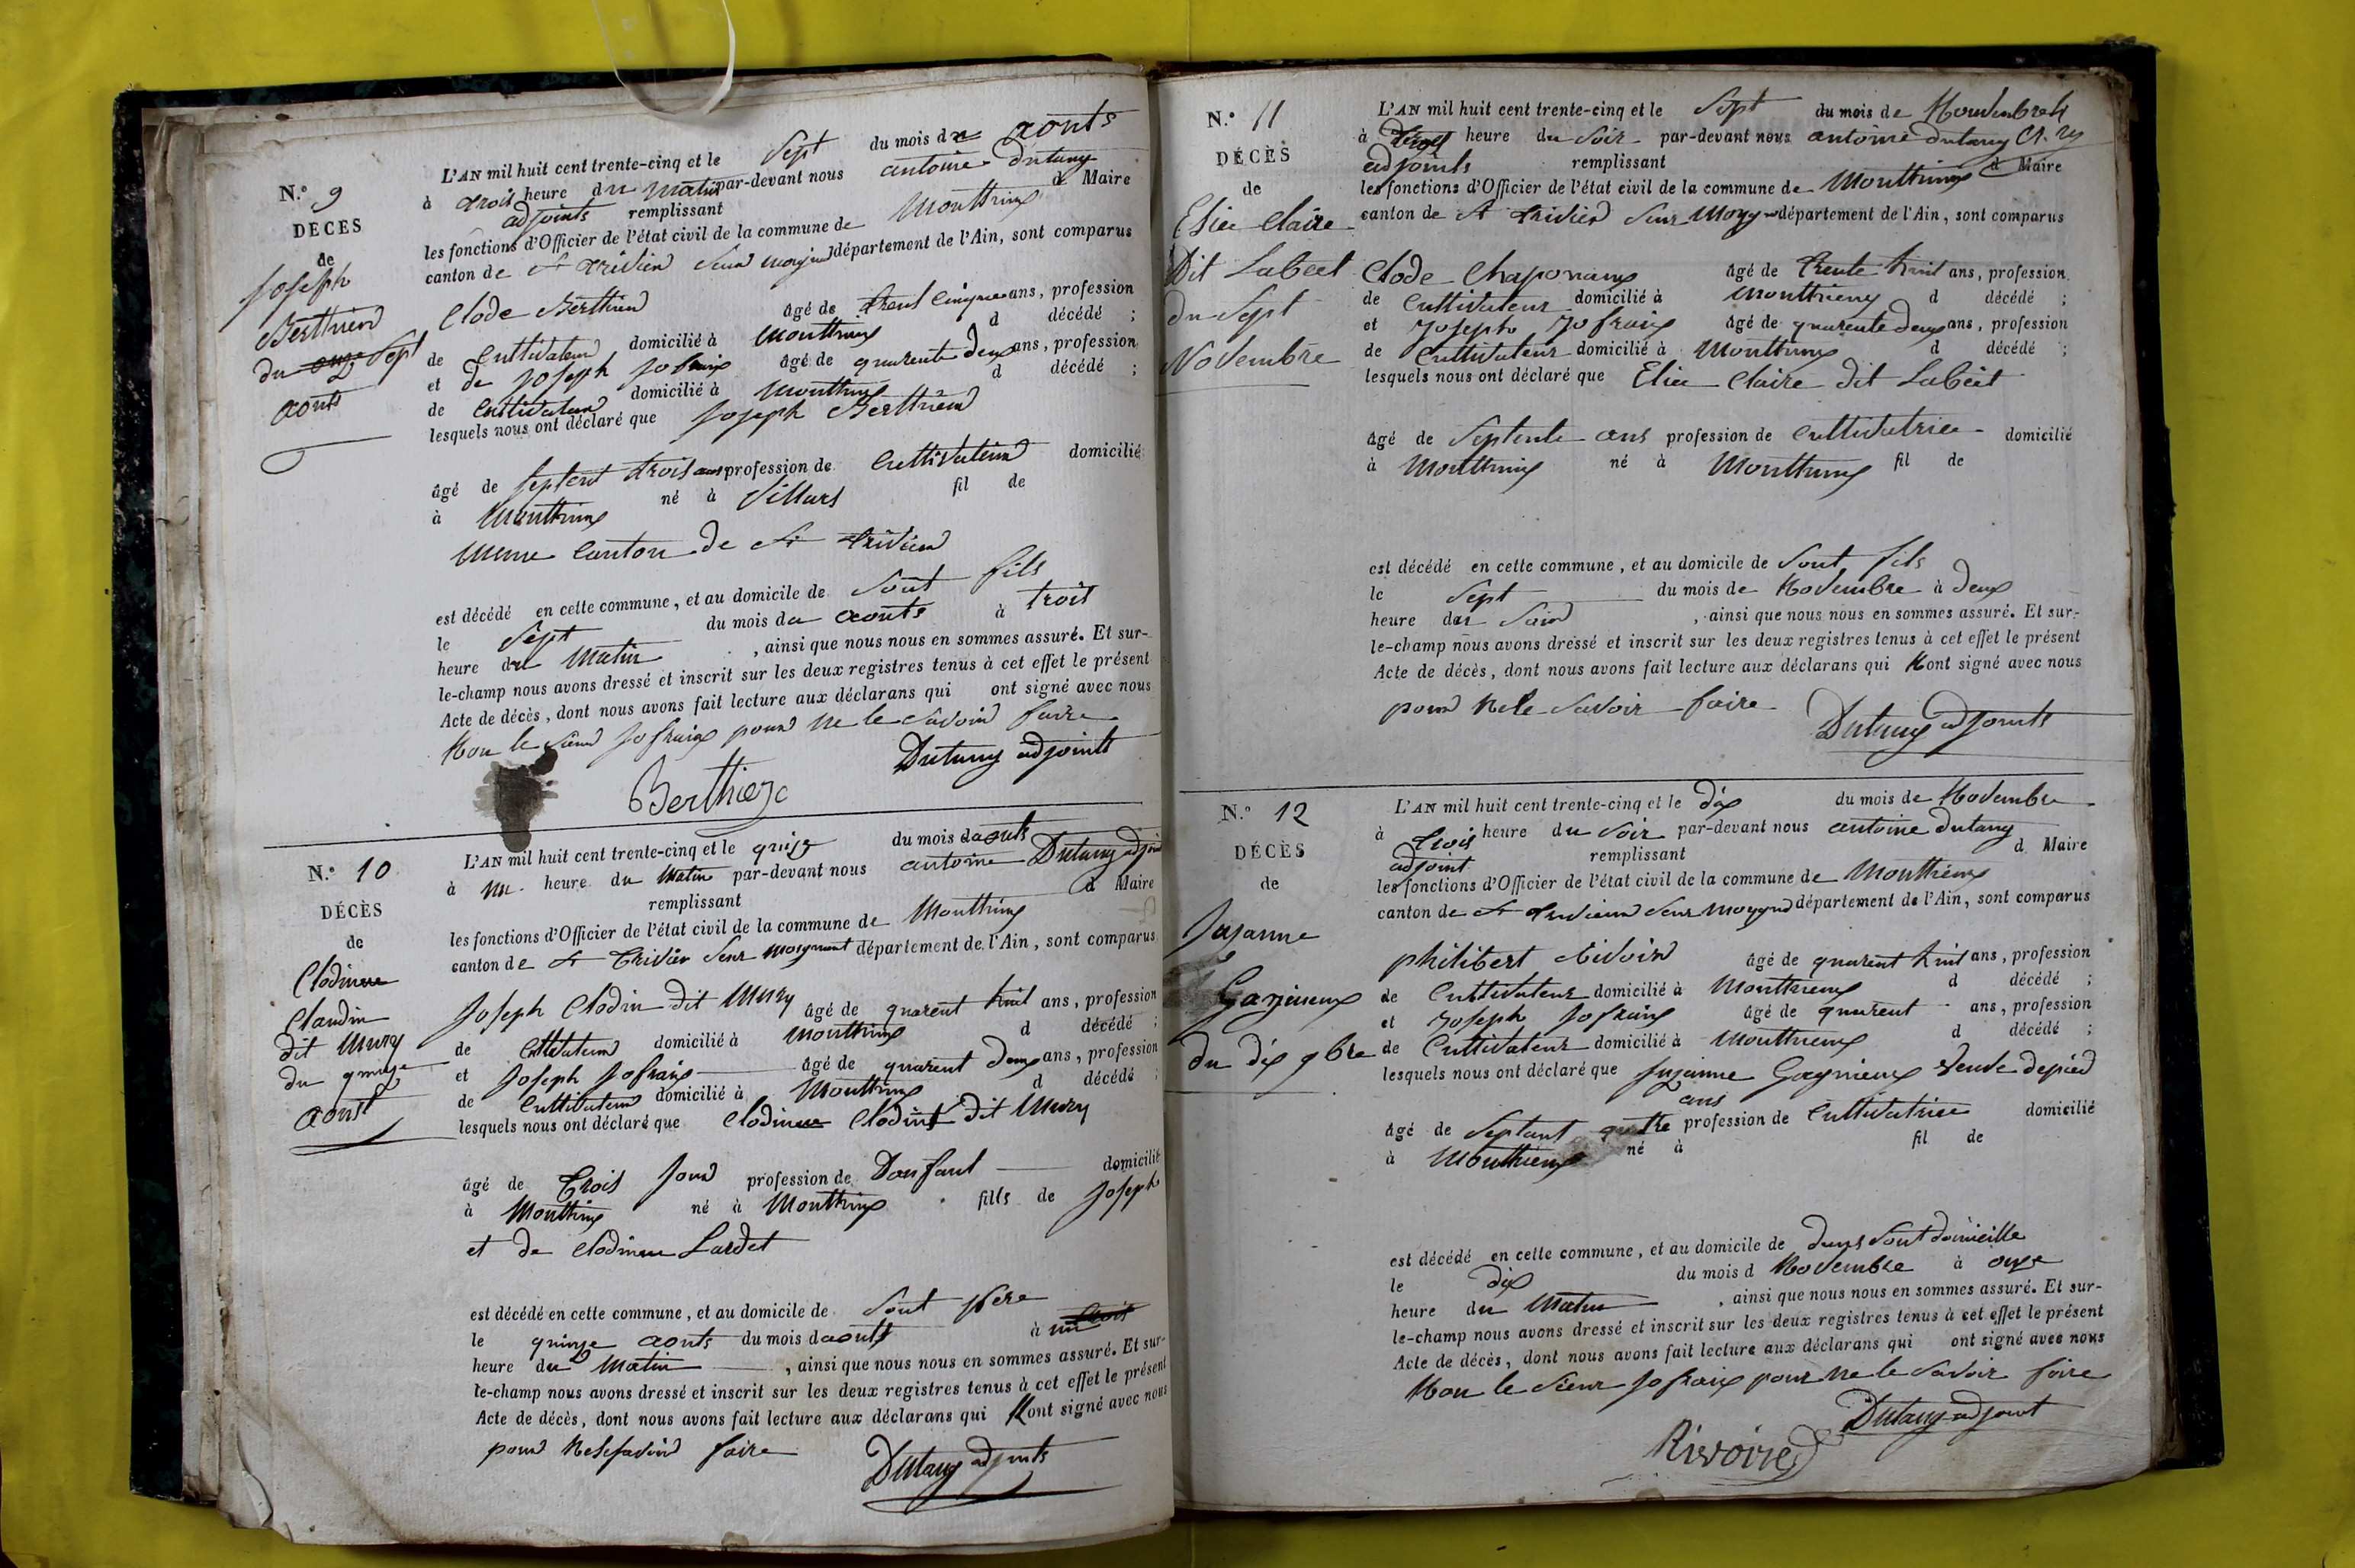 N.º 9
DÉCÈS
de
Joseph
Berthier
du onze Sept
aouts
L'AN mil huit cent trente-cinq et le Sept du mois d aouts
à trois heure du matin par-devant nous antoine dutang
adjoints remplissant d Maire
les fonctions d'Officier de l'état civil de la commune de Monthieux
canton de St trivier Seur moignand département de l'Ain, sont comparus
Clode Berthier âgé de trent Cinque ans, profession
de Cultivateur domicilié à Monthieux d décédé ;
et de Joseph Jofraix âgé de quarente deux ans, profession
de Cultivateur domicilié à Monthieux d décédé ;
lesquels nous ont déclaré que Joseph Berthier
âgé de septent trois ans profession de Cultivateur domicilié
à Monthieux né à Villars fil de
meme Canton de St trivier
est décédé en cette commune, et au domicile de Sont fils
le Sept du mois du aouts à trois
heure du Matin , ainsi que nous nous en sommes assuré. Et sur-
le-champ nous avons dressé et inscrit sur les deux registres tenus à cet effet le présent
Acte de décès, dont nous avons fait lecture aux déclarans qui ont signé avec nous
Non le Sieur Jofraix pour ne le Savoir faire
Dutang adjoints
Berthier
N.º 10
DÉCÈS
de
Clodine
Claudin
dit Mury
du quinze
aoust
L'AN mil huit cent trente-cinq et le quinze du mois d aouts
à un heure du Matin par-devant nous antoine Dutang adjoint
remplissant d Maire
les fonctions d'Officier de l'état civil de la commune de Monthieux
canton de St Trivier Seur moignand département de l'Ain, sont comparus
Joseph Clodin dit Mury âgé de quarent huit ans, profession
de Cultivateur domicilié à Monthieux d décédé ;
et Joseph Jofraix âgé de quarent deux ans, profession
de Cultivateur domicilié à Monthieux d décédé ;
lesquels nous ont déclaré que Clodine Clodin dit Mury
âgé de Trois Jour profession de Danfant domicilié
à Monthieux né à Monthieux fills de Joseph
et de Clodine Lardet
est décédé en cette commune, et au domicile de Sont père
le quinze aouts du mois d aouts à un trois
heure du Matin , ainsi que nous nous en sommes assuré. Et sur-
le-champ nous avons dressé et inscrit sur les deux registres tenus à cet effet le présent
Acte de décès, dont nous avons fait lecture aux déclarans qui Nont signé avec nous
pour Nelesavoir faire
Dutang adjoints
N.º 11
DÉCÈS
de
Elise Claire
Dit Labeet
du Sept
Novembre
L'AN mil huit cent trente-cinq et le Sept du mois de Novembre
à trois heure du Soir par-devant nous antoine dutang
adjoints remplissant d Maire
les fonctions d'Officier de l'état civil de la commune de Monthieux
canton de St trivier Seur Moign département de l'Ain, sont comparus
Clode Chaponaux âgé de trente huit ans, profession
de Cultivateur domicilié à Monthieux d décédé ;
et Joseph Jofraix âgé de quarente deux ans, profession
de Cultivateur domicilié à Monthieux d décédé ;
lesquels nous ont déclaré que Elise Claire dit Labeet
âgé de Septente ans profession de Cultivatrice domicilié
à Monthieux né à Monthieux fil de
est décédé en cette commune, et au domicile de Sont fils
le Sept du mois de Novembre à deux
heure du Soir , ainsi que nous nous en sommes assuré. Et sur-
le-champ nous avons dressé et inscrit sur les deux registres tenus à cet effet le présent
Acte de décès, dont nous avons fait lecture aux déclarans qui Nont signé avec nous
pour Nele Savoir faire
Dutang adjoints
N.º 12
DÉCÈS
de
Suzanne
Ganieux
du dix 9bre
L'AN mil huit cent trente-cinq et le dix du mois de Novembre
à trois heure du Soir par-devant nous antoine dutang
adjoint remplissant d Maire
les fonctions d'Officier de l'état civil de la commune de Monthieux
canton de St trivier Seur moignand département de l'Ain, sont comparus
philibert Rivoir âgé de quarent huit ans, profession
de Cultivateur domicilié à Monthieux d décédé ;
et Joseph Jofraix âgé de quarent ans, profession
de Cultivateur domicilié à Monthieux d décédé ;
lesquels nous ont déclaré que Suzanne Gagnieux Veuve depied
ans
âgé de Septant quatre profession de Cultivatrice domicilié
à Monthieux né à fil de
est décédé en cette commune, et au domicile de dans Sont domicille
le dix du mois d Novembre à onze
heure du Matin , ainsi que nous nous en sommes assuré. Et sur-
le-champ nous avons dressé et inscrit sur les deux registres tenus à cet effet le présent
Acte de décès, dont nous avons fait lecture aux déclarans qui ont signé avec nous
Non le Sieur Jofraix pour ne le Savoir faire
Dutang adjoint
Rivoire